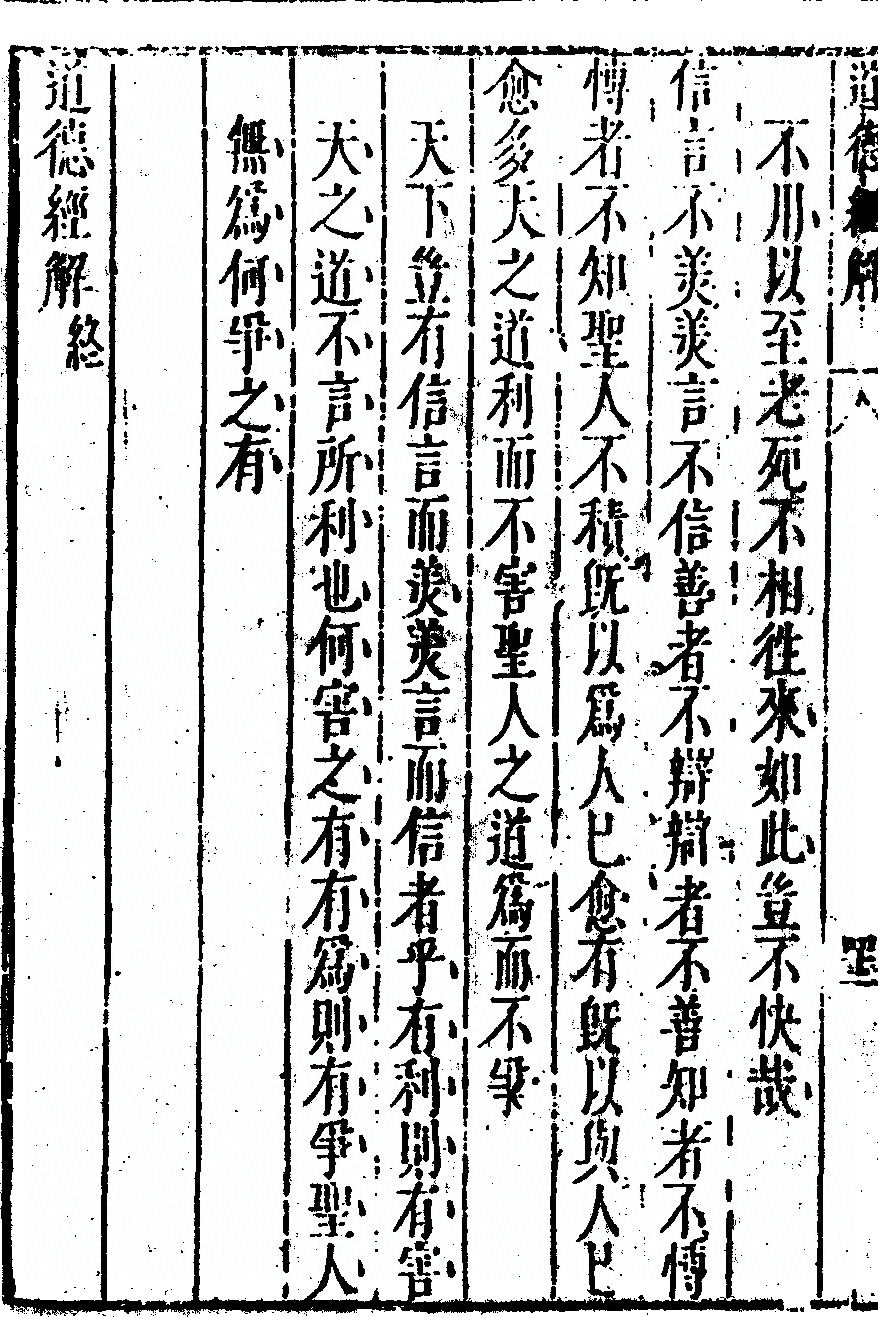 道德經解
不用以至老死不相徃來如此豈不快哉
信言不羙羙言不信善者不辯辯者不善知者不愽
愽者不知聖人不積旣以爲人已愈有旣以與人已
愈多天之道利而不害聖人之道爲而不爭
天下豈有信言而羙羙言而信者乎有利則有害
天之道不言所利也何害之有有爲則有爭聖人
無爲何爭之有
道德經解終